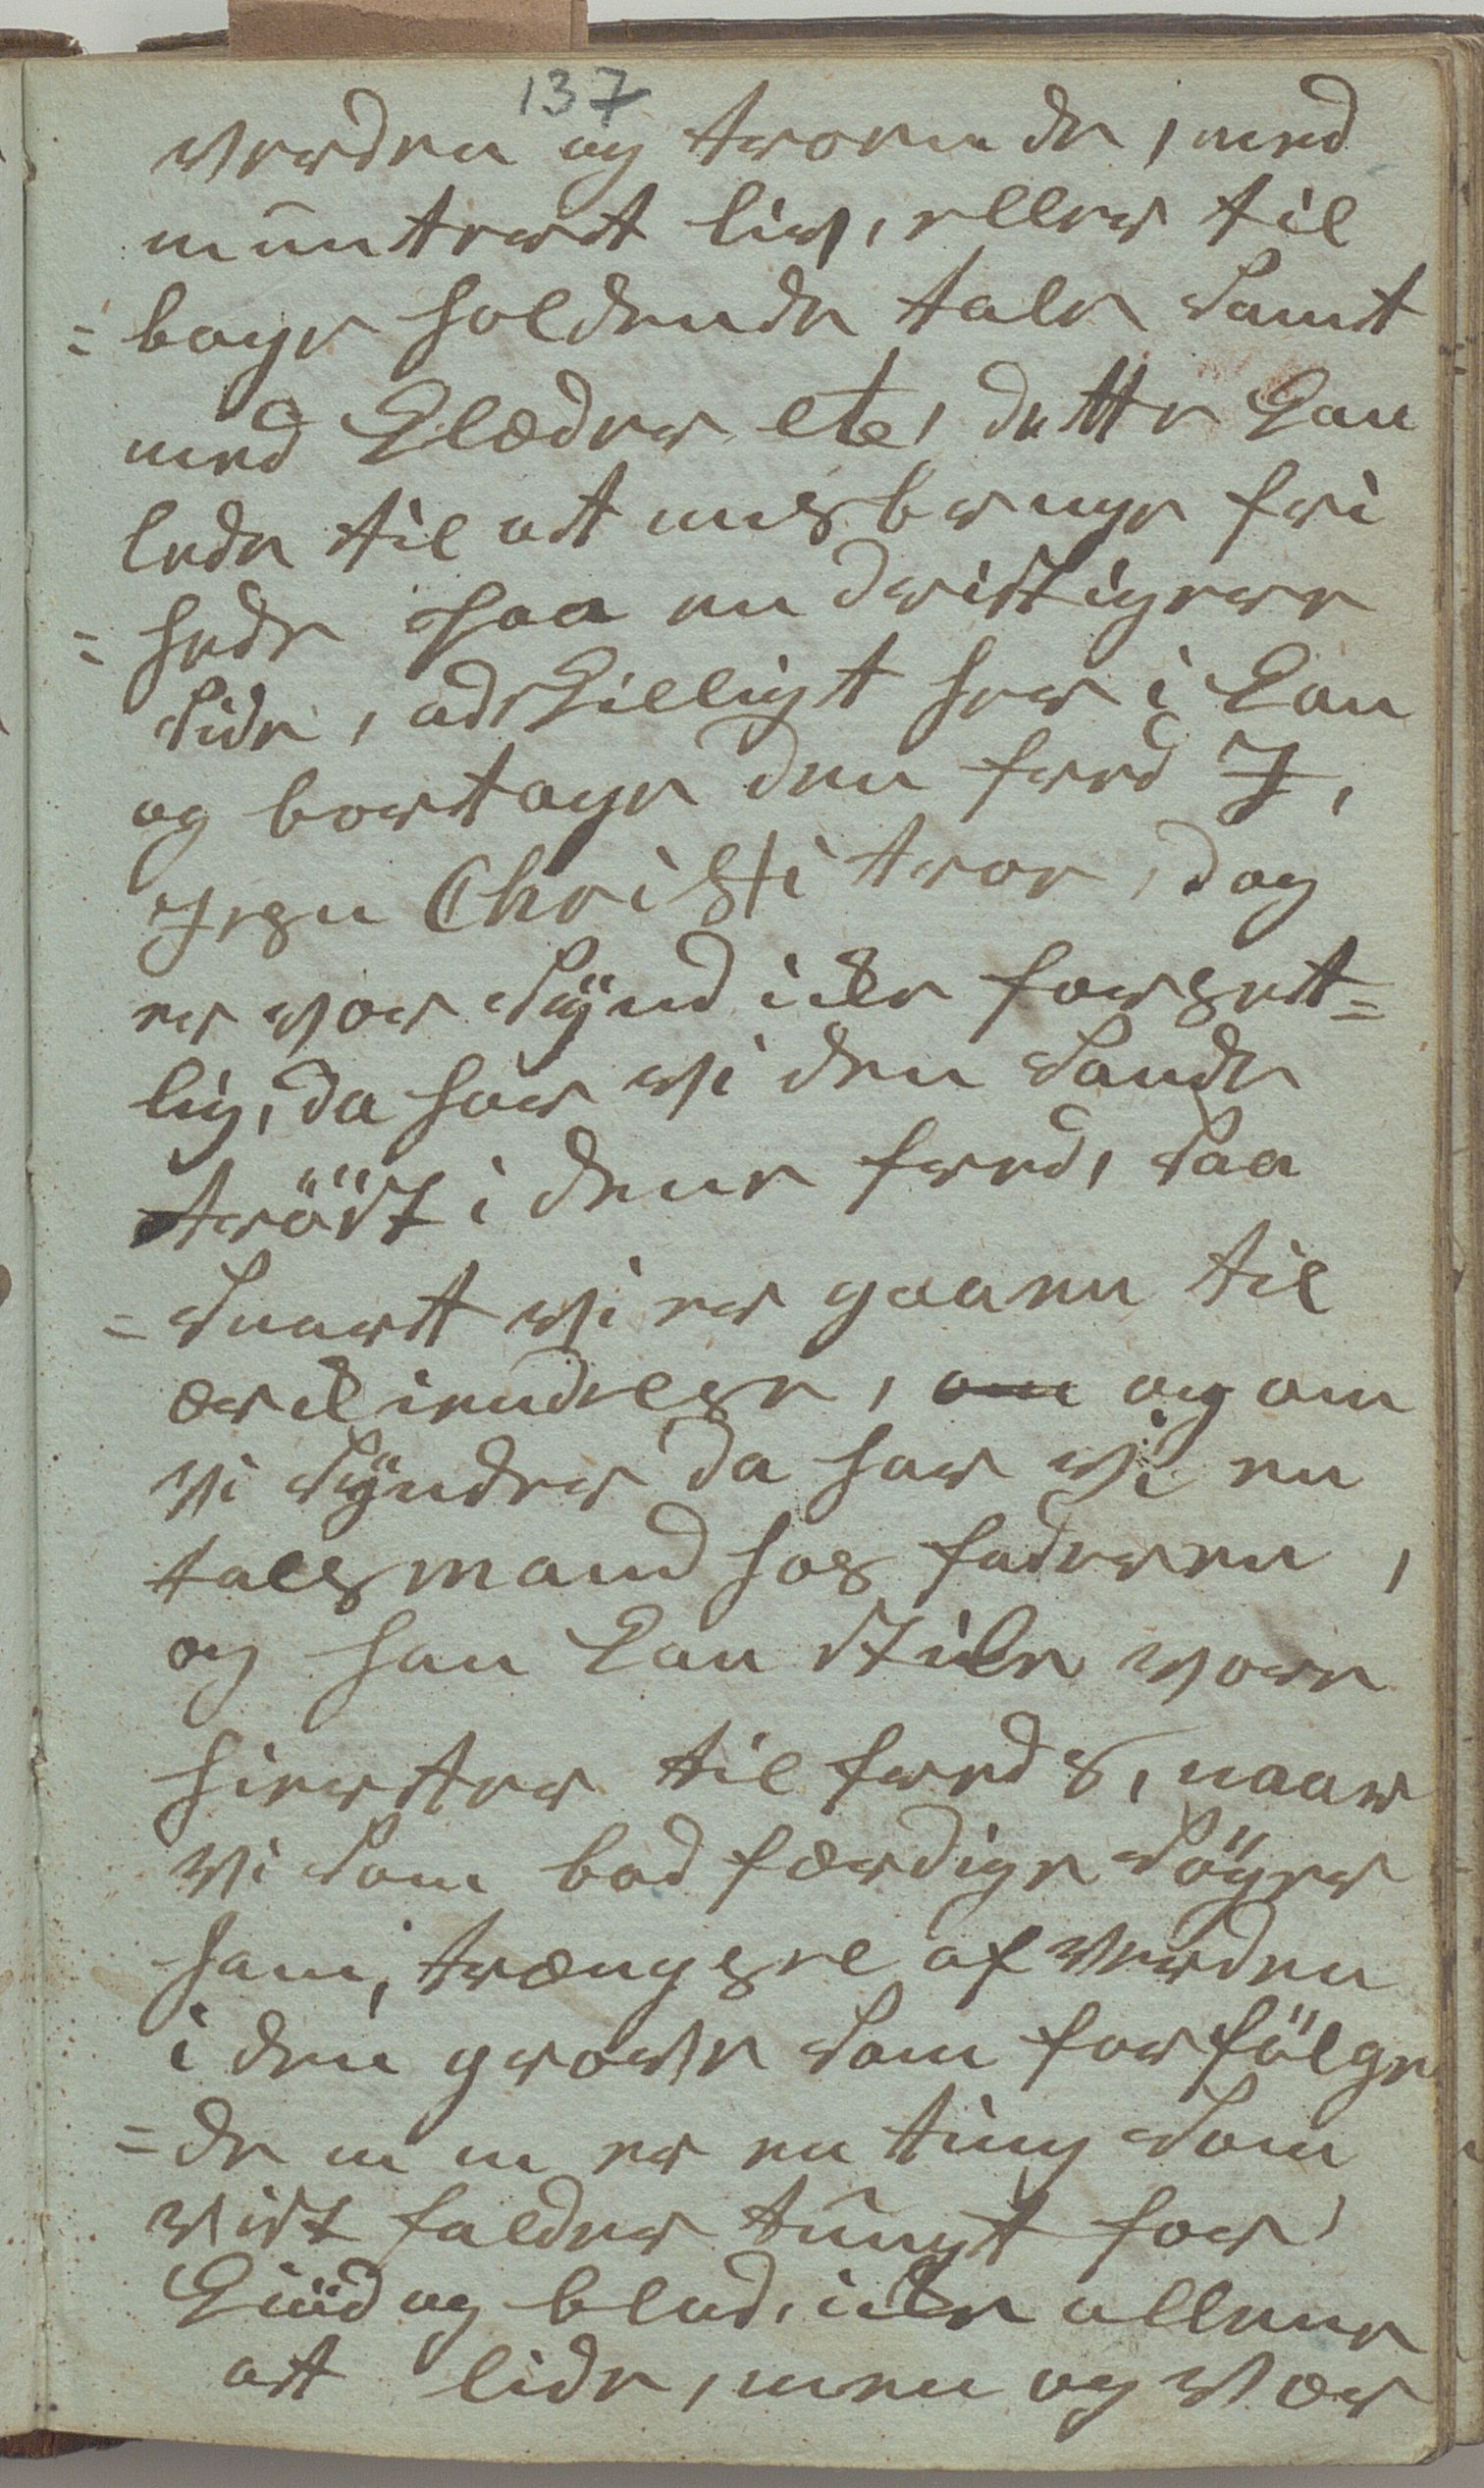 137
verden og troende, med
muntert liv, eller til
=bage holdende tale samt
med Klæder etc, dette kan
lede til at misbruge fri
=hede paa en dristigere
side, adskilligt her i kan
og borttage den fred I,
Jesu Christi troe, dog
er vor Synd ikke forsett=
lig, da har vi den sande
tröst i dene fred, saa
=snartt vi er gaaen til
ærkiendelse, om og om
vi Synder da har vi en
talsmand hos faderen,
og han kan stille vore
hierter til freds, naar
vi som bodfærdige söger
ham, trængsel af verden
i den grove som forfölge
=de m m er en ting som
vist falder tungt for
Kiöd og blod, ikke allene
att lide, men og vær